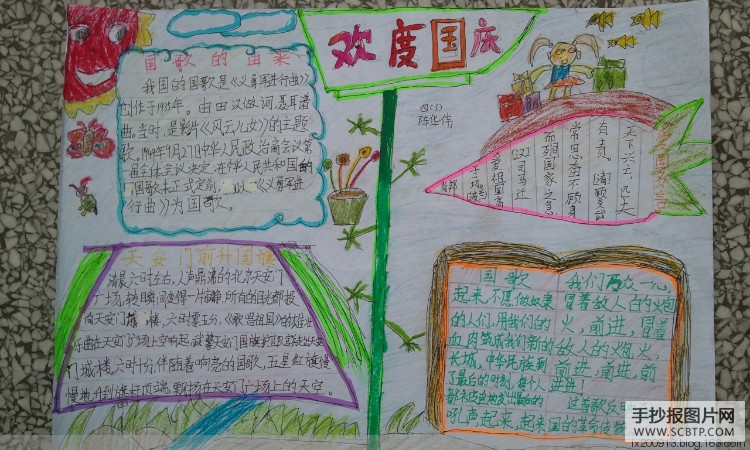 欢度国庆
四(3)
国歌的由来
我国的国歌是《义勇军进行曲》
创作于1935年。由田汉做词,聂耳谱
曲。当时,是影片《风云儿女》的主题
歌。1949年9月27日中华人民政治商会议第
一届主体会议决定,在中华人民共和国的
国歌未正式定制,以《义勇军进
行曲》为国歌。
天下兴亡,匹夫
有责。(清)顾炎武
常思奋不顾身
而殉国家之急
(汉)司马迁
天安门前升国旗
清晨六时左右,人声鼎沸的北京天安门
广场,转瞬间变得一片寂静,所有的目光都投
向天安门城楼,六时零五分,《歌唱祖国》的雄壮
乐曲在天安门广场上空响起,武警天安门国旗护卫队走出天安
门城楼,六时十分,伴随着响亮的国歌,五星红旗慢
慢地升到旗杆顶端,飘扬在天安门广场上的天空。
国歌
起来,不愿做奴隶
的人们,用我们的
血肉筑成我们新的
长城。中华民族到
了最后的时刻,每个人
都被迫着发出最后的
吼声起来,起来
我们万众一心,
冒着敌人的炮
火,前进,冒着
敌人的炮火,
前进,前进,前
进,进!
这首歌反
国的革命传统
手抄报图片网
WWW.SCBTP.COM
fx200913.blog.163.com